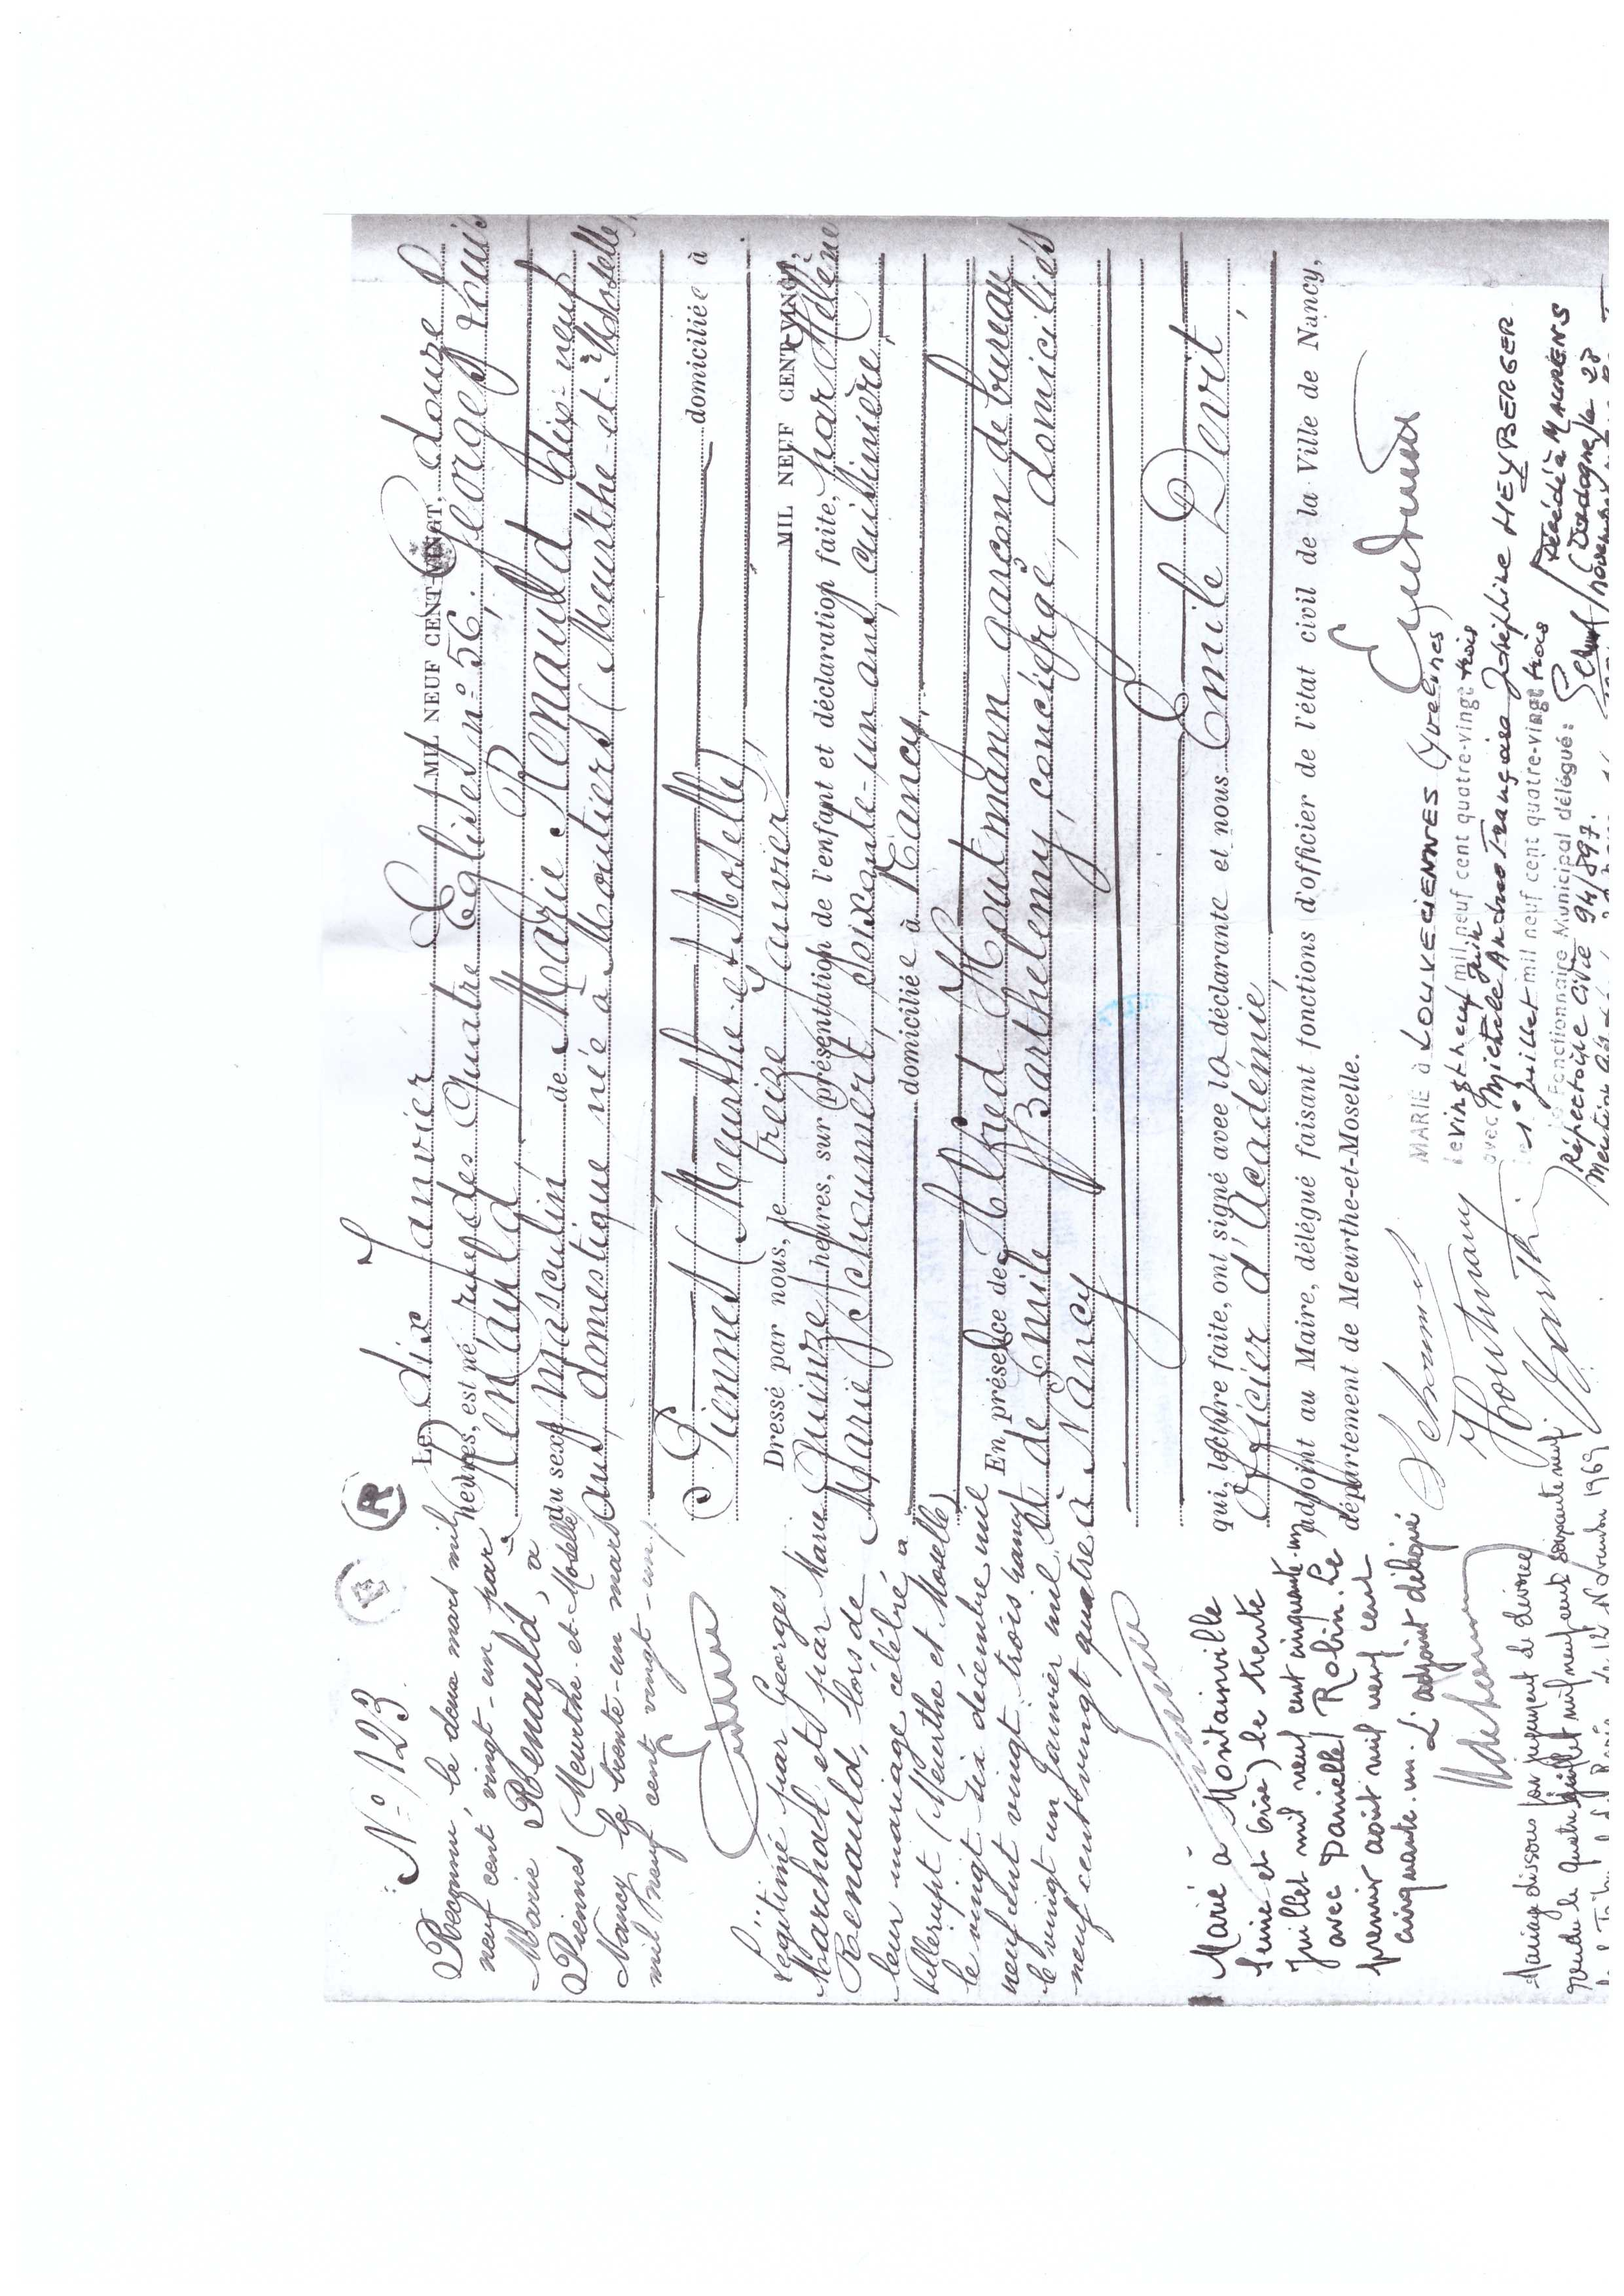 N° 123
R
Le dix Janvier MIL NEUF CENT VINGT, douze
heures, est né rue des Quatre Eglises n° 56, Georges Louis
Renauld,
du sexe masculin de Marie Renauld dix-neuf
ans domestique née à Moutiers (Meurthe-et-Moselle)
domiciliée à
Piennes (Meurthe-et-Moselle)
Dressé par nous, le treize Janvier MIL NEUF CENT VINGT,
Quinze heures, sur présentation de l'enfant et déclaration faite, par Hélène
Marie Schoumert soixante-un ans, cuisinière,
domiciliée à Nancy,
En présence de Alfred Houtmann garçon de bureau
et de Emile Barthelemy, concierge, domiciliés
à Nancy
qui, lecture faite, ont signé avec la déclarante et nous Emile Devit,
Officier d'Académie,
adjoint au Maire, délégué faisant fonctions d'officier de l'état civil de la Ville de Nancy,
département de Meurthe-et-Moselle.
Houtmann
Reconnu, le deux mars mil
neuf cent vingt-un par
Marie Renauld, à
Piennes (Meurthe-et-Moselle)
Nancy le trente-un mars
mil neuf cent vingt-un,
Légitimé par Georges
Marchall et par Marie
Renauld, lors de
leur mariage célébré à
Villerupt (Meurthe et Moselle)
le vingt six décembre mil
neuf cent vingt trois Nancy
le vingt un Janvier mil
neuf cent vingt quatre
Marié à Montainville
Seine et Oise) le trente
Juillet mil neuf cent cinquante-un
avec Danielle Robin. Le
premier août mil neuf cent
cinquante-un. L'adjoint délégué
Mariage dissous par jugement de divorce
rendu le quatre juillet mil neuf cent soixante neuf
12 Novembre 1969
MARIE à LOUVECIENNES (Yvelines
le vingt neuf juin mil neuf cent quatre-vingt trois
avec Michèle Andrée Françoise Joséphine HEYBERGER
Le 1er juillet mil neuf cent quatre-vingt trois
Le Fonctionnaire Municipal délégué:
Répertoire Civil 94/897.
Décédé à MAURENS
(Dordogne) le 28